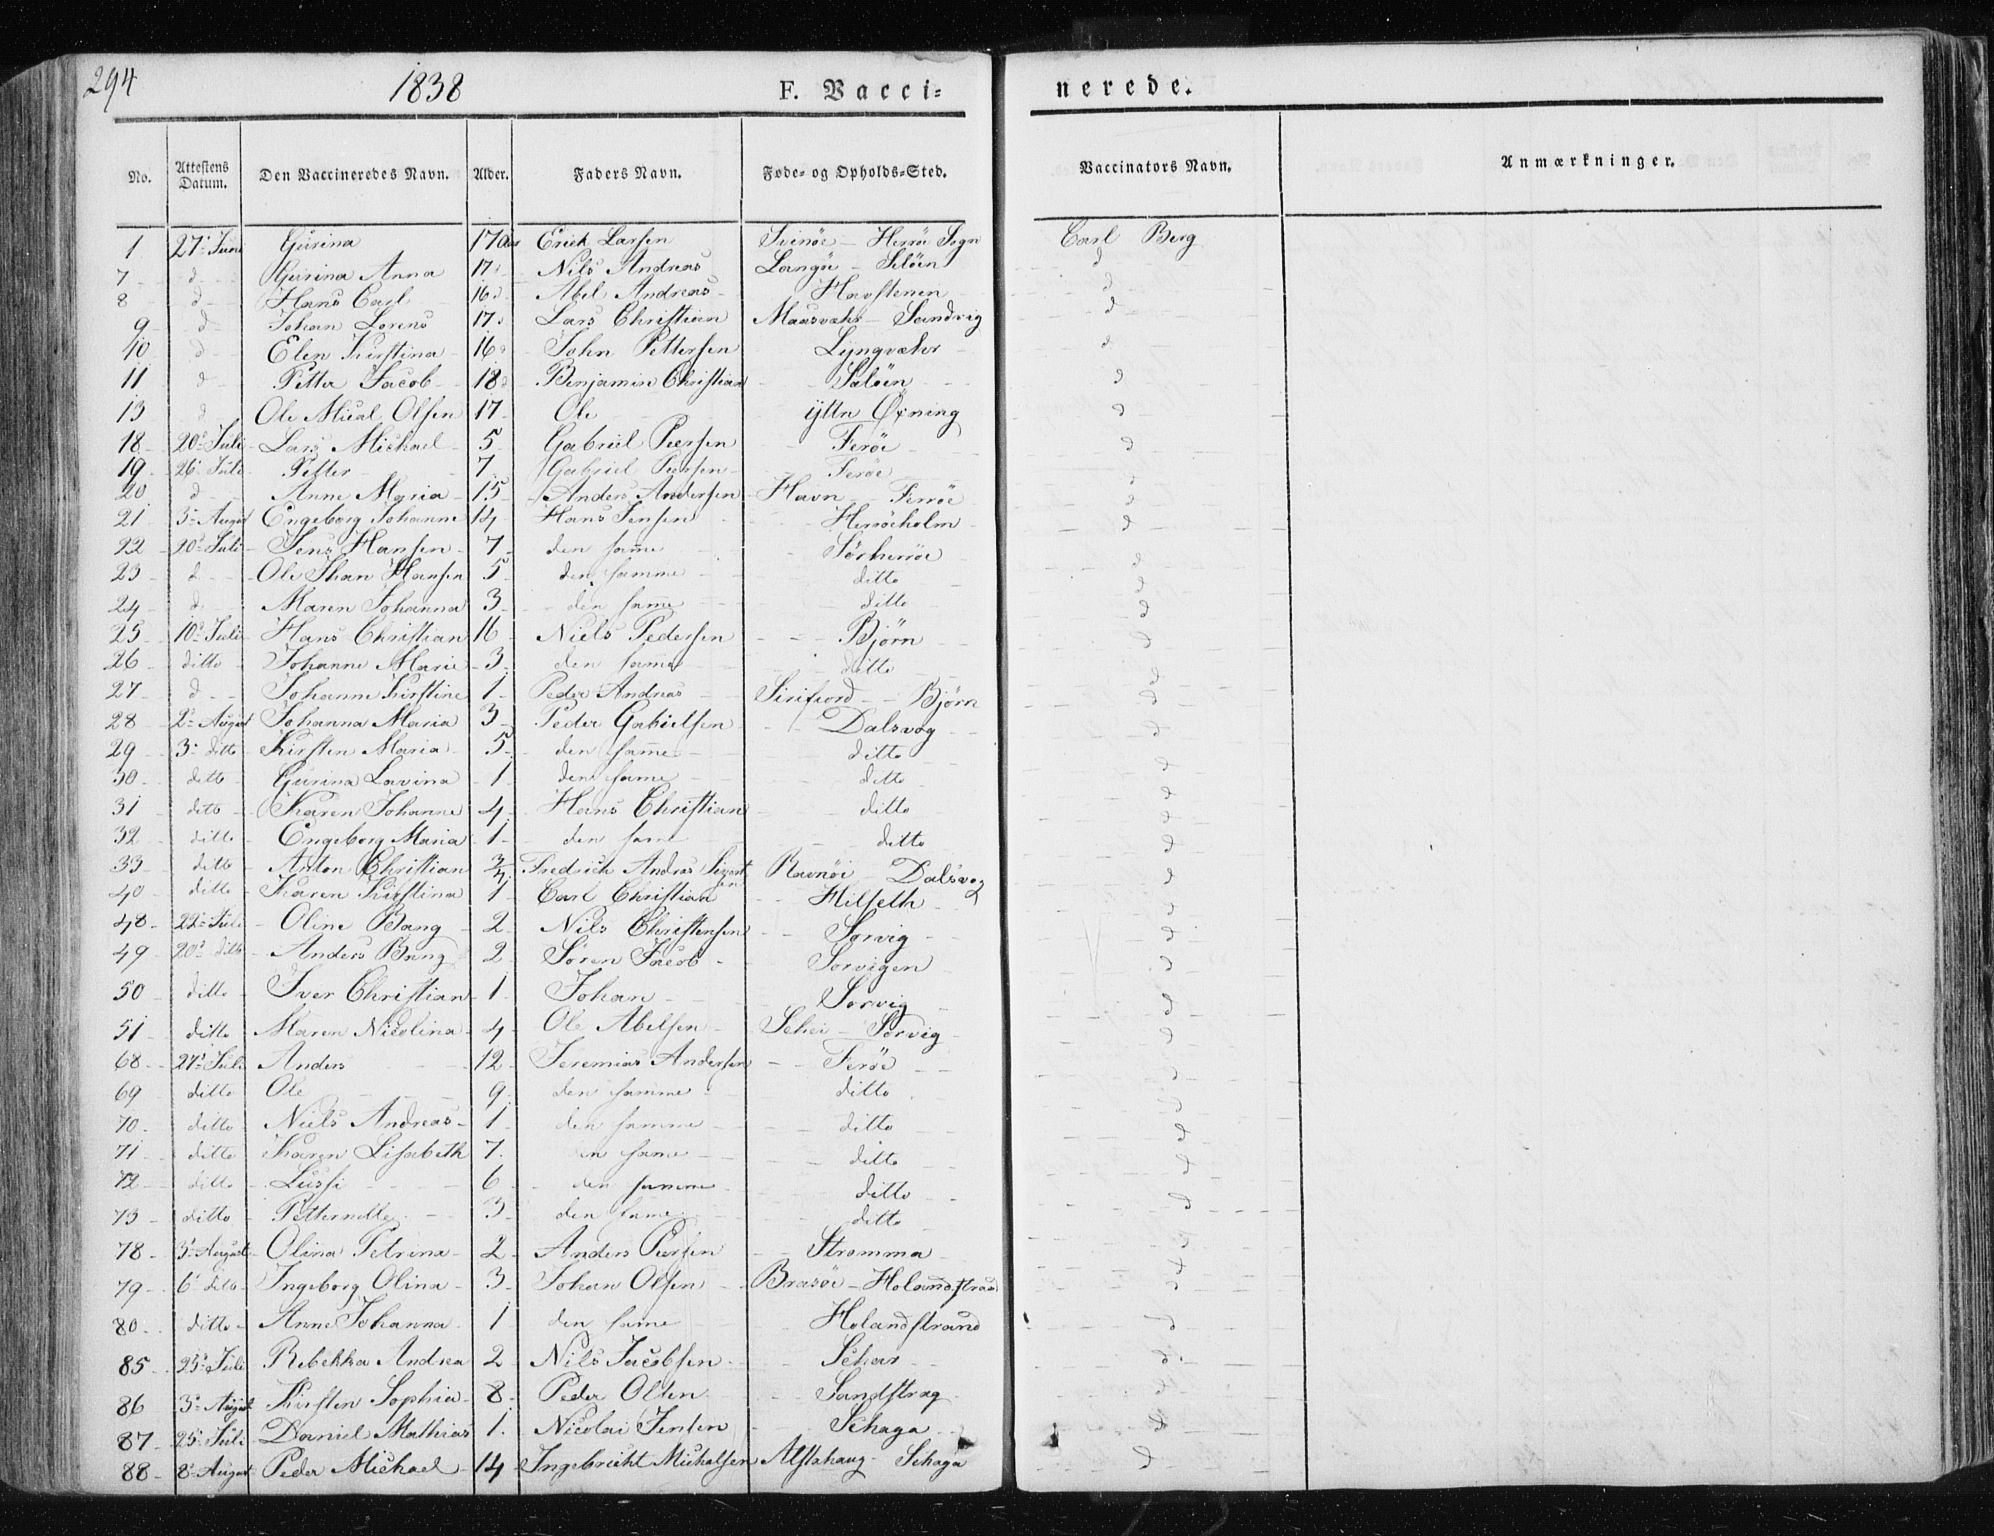 294 1838 F. Vacci- nerede.
No. Attestens Datum. Den Vaccineredes Navn. Alder. Faders Navn. Føde- og Opholds-Sted. Vaccinators Navn. Anmærkninger.
1 27' Juni Gurina 17 Erick Larsen Svinøe - Herrøe Sogn Carl Berg
7 d Gurina Anna 17 d Nils Andreas Langøe - Seløen d
8 d Hans Carl 16 d Abel Andreas Havstenen d
9 d Johan Lorens 17 d Lars Christian Maasvæhr - Sandvig d
10 d Elen Kirstina 16 d John Pettersen Lyngvæhr d
11 d Petter Jacob 18 d Benjamin Christian Seløen d
13 d Ole Mical Olsen 17 Ole ÿttre Øxning d
18 20' Juli Lars Michael 5 Gabriel Peersen Ferøe d
19 26' Juli Petter 7 Gabriel Peersen Ferøe d
20 d Anne Maria 15 Anders Andersen Havn - Ferrøe d
21 3' August Engeborg Johanne 14 Hans Jensen Herrøeholm d
22 20' Juli Jens Hansen 7 den same Sörherrøe d
23 d Ole Ihan Hansen 5 den samme ditto d
24 d Maren Johanna 3 den same ditto d
25 10' Juli Hans Christian 16 Niels Pedersen Bjørn d
26 ditto Johanne Marie 3 den same ditto d
27 d Johanne Kirstine 1 Peder Andreas Sirifiord - Bjørn d
28 2' August Johanna Maria 3 Peder Gabielsen Dalsvog d
29 3' ditto Kirsten Maria 5 den same ditto d
30 ditto Gurina Lavina 1 den same ditto d
31 ditto Karen Johanne 4 Hans Christian ditto d
32 ditto Engeborg Maria 1 den same ditto d
33 ditto Anton Christian 3/4 Fredrich Andreas Ravnøi - Dalsvog d
40 ditto Karen Kirstina 1 Carl Christian Hilseth d
48 22' Juli Oline Bang 2 Nils Christensen Sorvig d
49 20' ditto Anders Bang 2 Sören Jacob Sorvigen d
50 ditto Iver Christian 1 Johan Sorvig d
51 ditto Maren Nicolina 4 Ole Abelsen Schei - Sorvig d
68 27' Juli Anders 12 Jeremias Andersen Ferøe d
69 ditto Ole 9 den samme ditto d
70 ditto Niels Andreas 1 den samme ditto d
71 ditto Karen Lisabeth 7 den same ditto d
72 ditto Lussi 6 den samme ditto d
73 ditto Petternelle 3 den same ditto d
78 3' August Olina Petrina 2 Anders Peersen Stromma d
79 6' ditto Ingeborg Olina 3 Johan Olsen Brasøe - Holandstrand d
80 ditto Anne Johanna 1 den same Holandstrand d
85 25' Juli Rebekka Andrea 2 Nils Jacobsen Schar d
86 3' August Kirsten Sophia 8 Peder Olsen Sandstrag d
87 25' Juli Daniel Mathias 1 Nicolai Jensen Schaga d
88 8' August Peder Michael 14 Ingebricht Michelsen Alstahaug - Schaga d